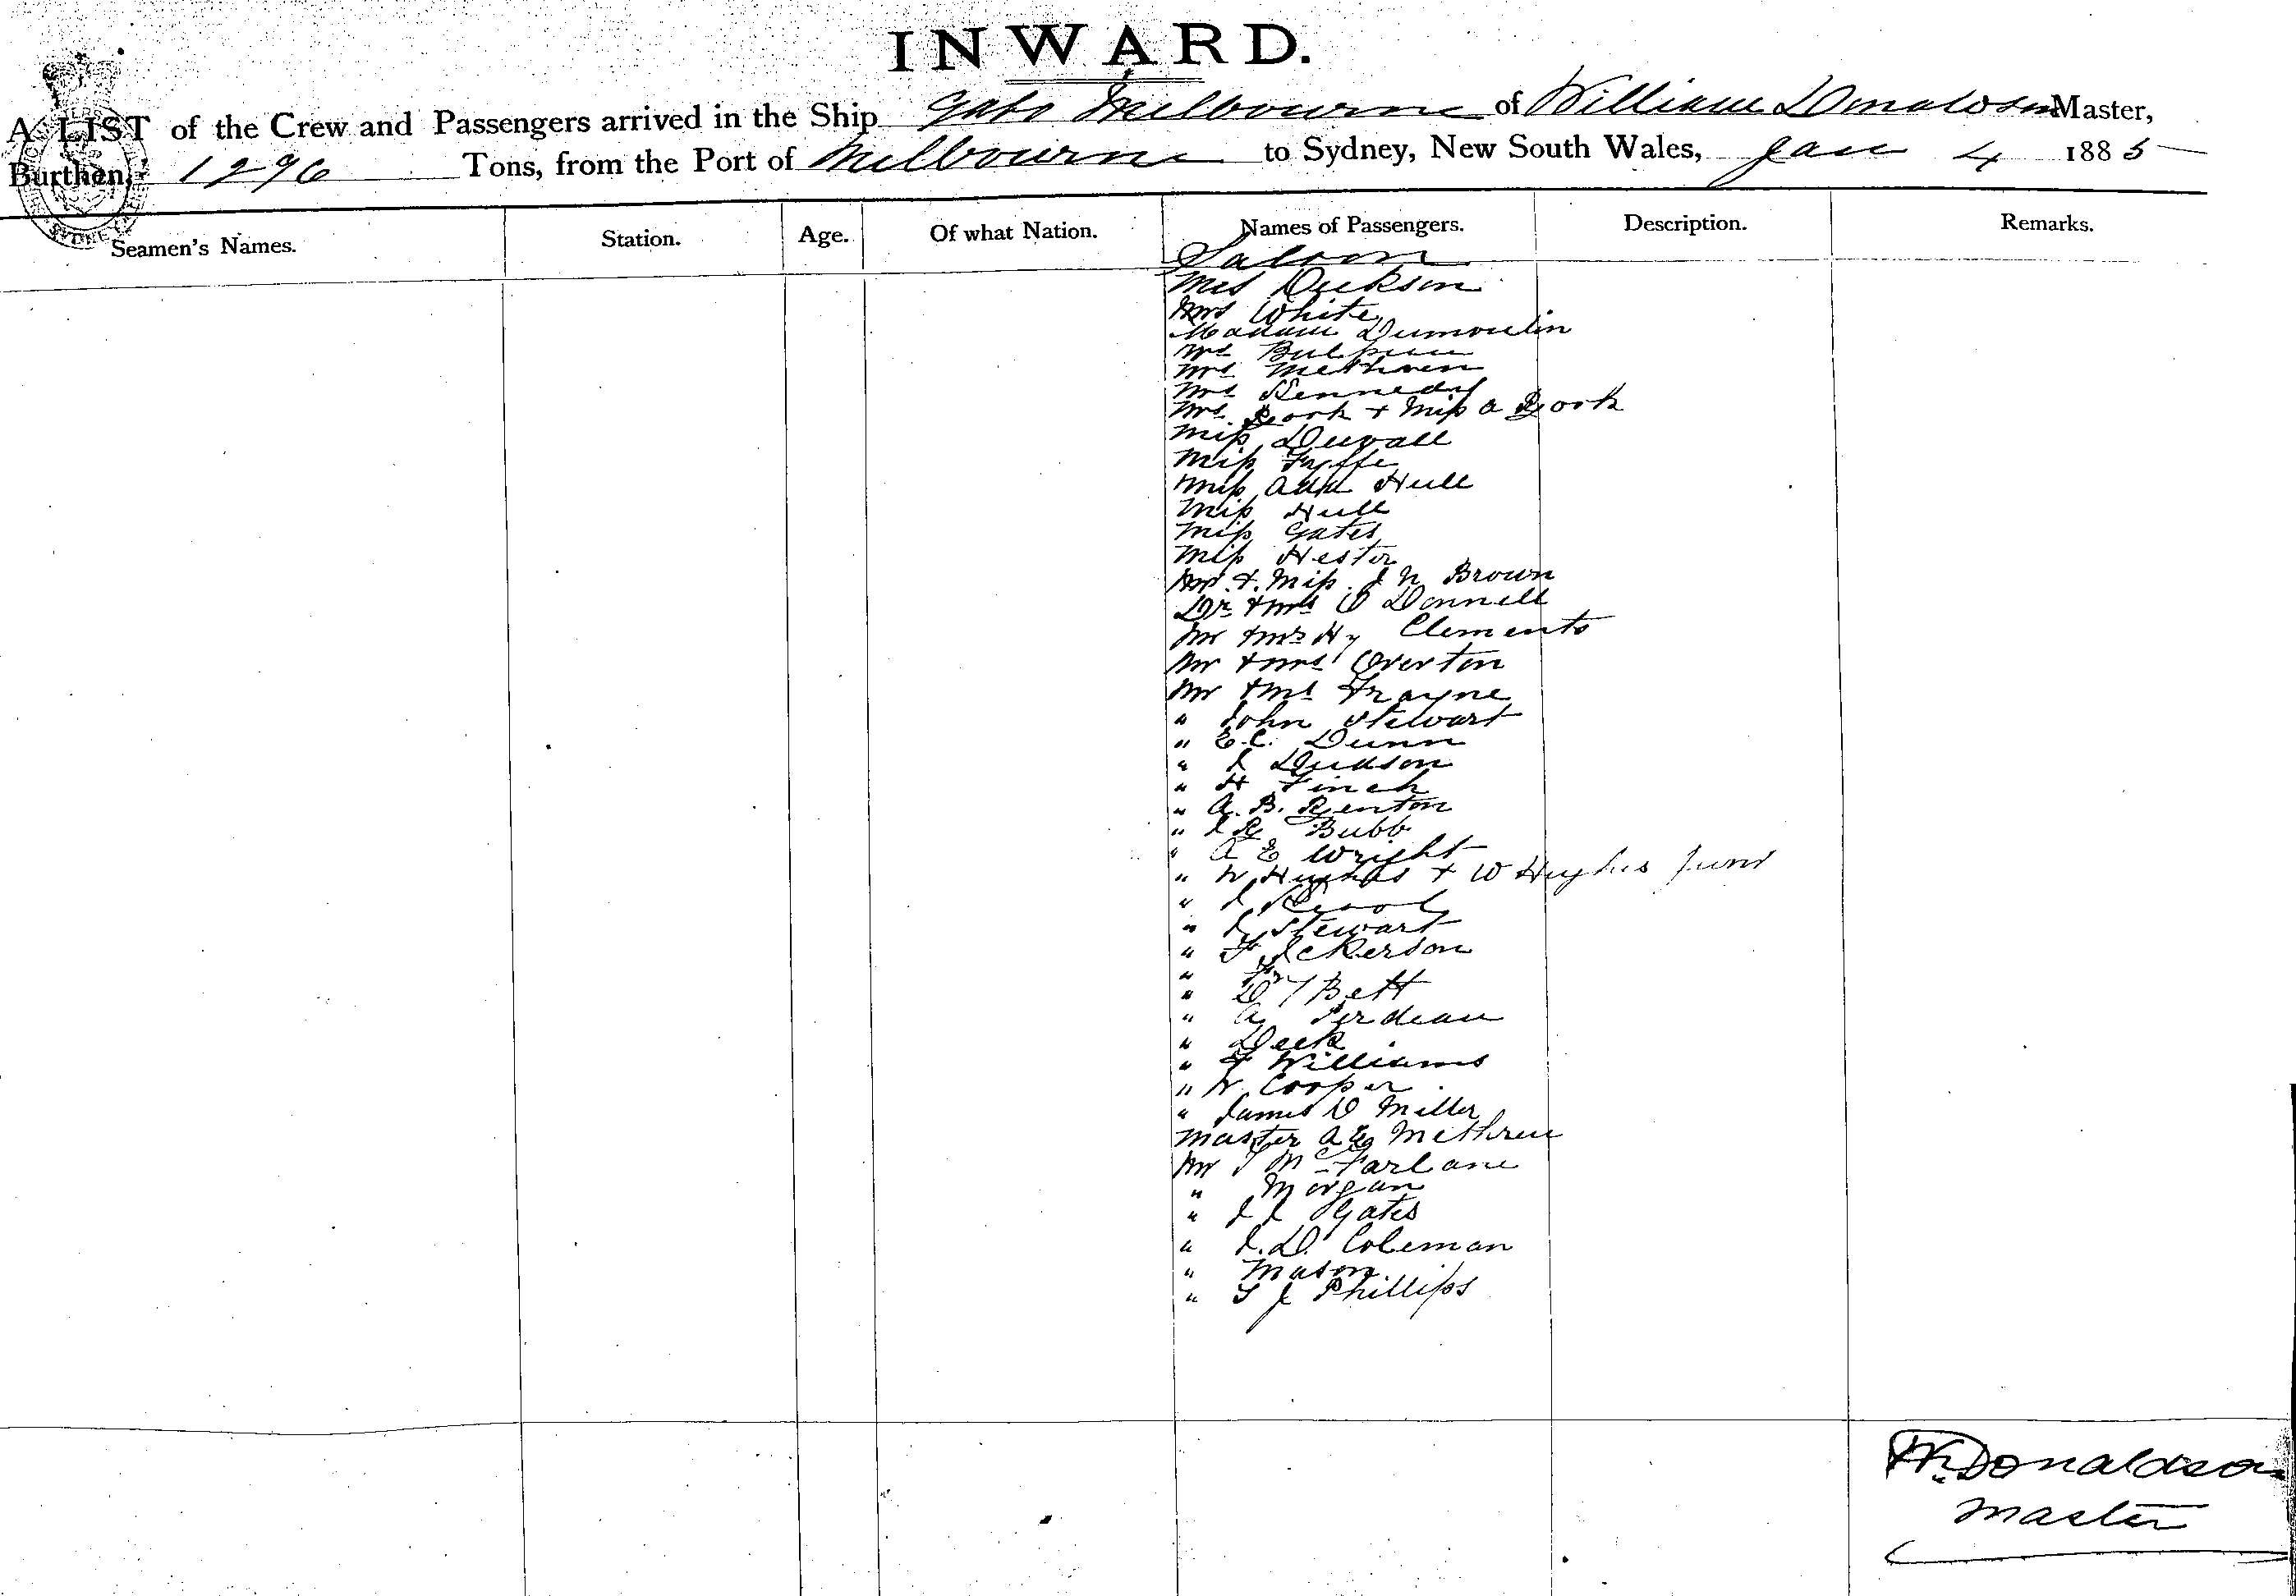 INWARD.
A LIST of the Crew and Passengers arrived in the Ship Gabo Melbourne of William Donaldson Master,
Burthen, 1296 Tons, from the Port of Melbourne to Sydney, New South Wales, Jan 4 1885
Seamen's Names. Station. Age. Of what Nation. Names of Passengers. Description. Remarks.
Saloon
Mrs Dickson
Mrs White
Madam Dumoulin
Mrs
Mrs Methven
Mrs Kennedy
Mrs Rork + Miss A Rork
Miss Duvall
Miss Fyffe
Miss Ada Hull
Miss Hull
Miss Gates
Miss Hester
Mr + Miss J N Brown
Dr + Mrs O Donnell
Mr + Mrs Hy Clements
Mr + Mrs Overton
Mr + Mrs Frayne
" John Stewart
" E.C. Dunn
" J
" H Finch
" A. B. Renton
" J R Bubb
" A E Wright
" W Hughes + W Hughes Junr
" J
" J Stewart
" F Ickerson
"
" Bett
" A Perdeau
"
" F Williams
" W. Cooper
" James D Miller
Master A E Methven
Mr T McFarlane
" Morgan
" J J Gates
" J. D. Coleman
" Mason
" S J Phillips
W. Donaldson
Master